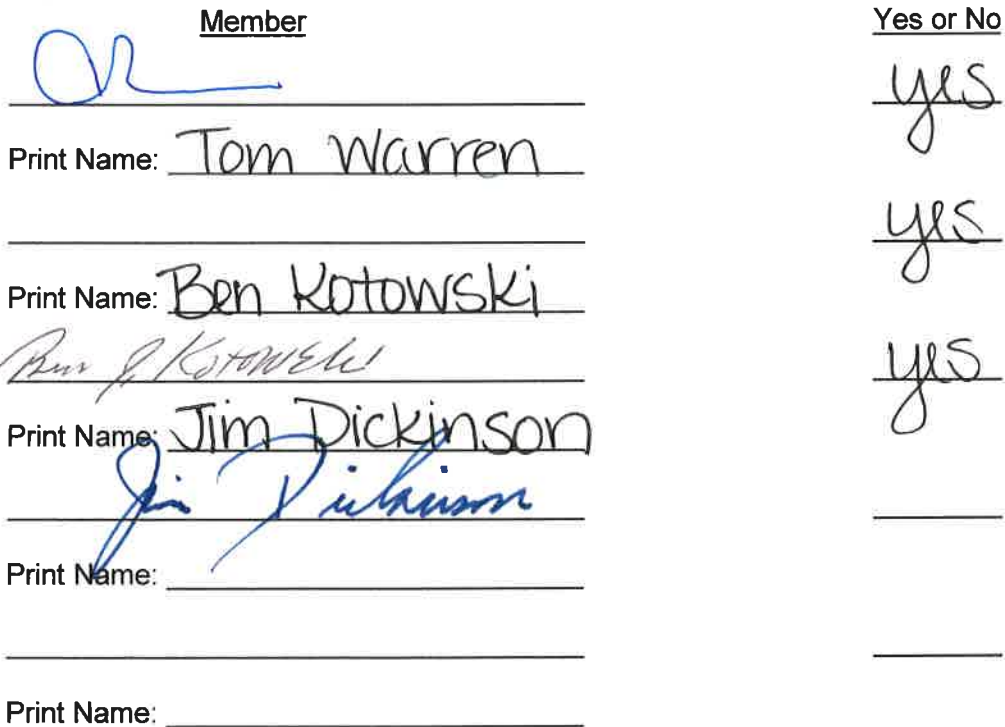 Member Yes or No
yes
Print Name: Tom Warren
yes
Print Name: Ben Kotowski
Ben J. Kotowski yes
Print Name: Jim Dickinson
Jim Dickinson
Print Name:
Print Name: